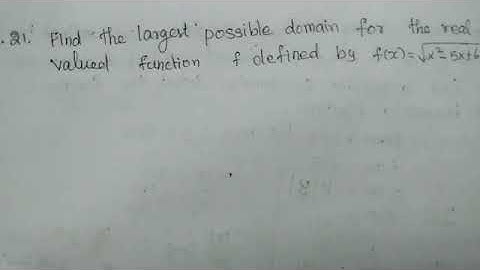 21. Find the largest possible domain for the real
valued function f defined by f(x)=√x²-5x+6